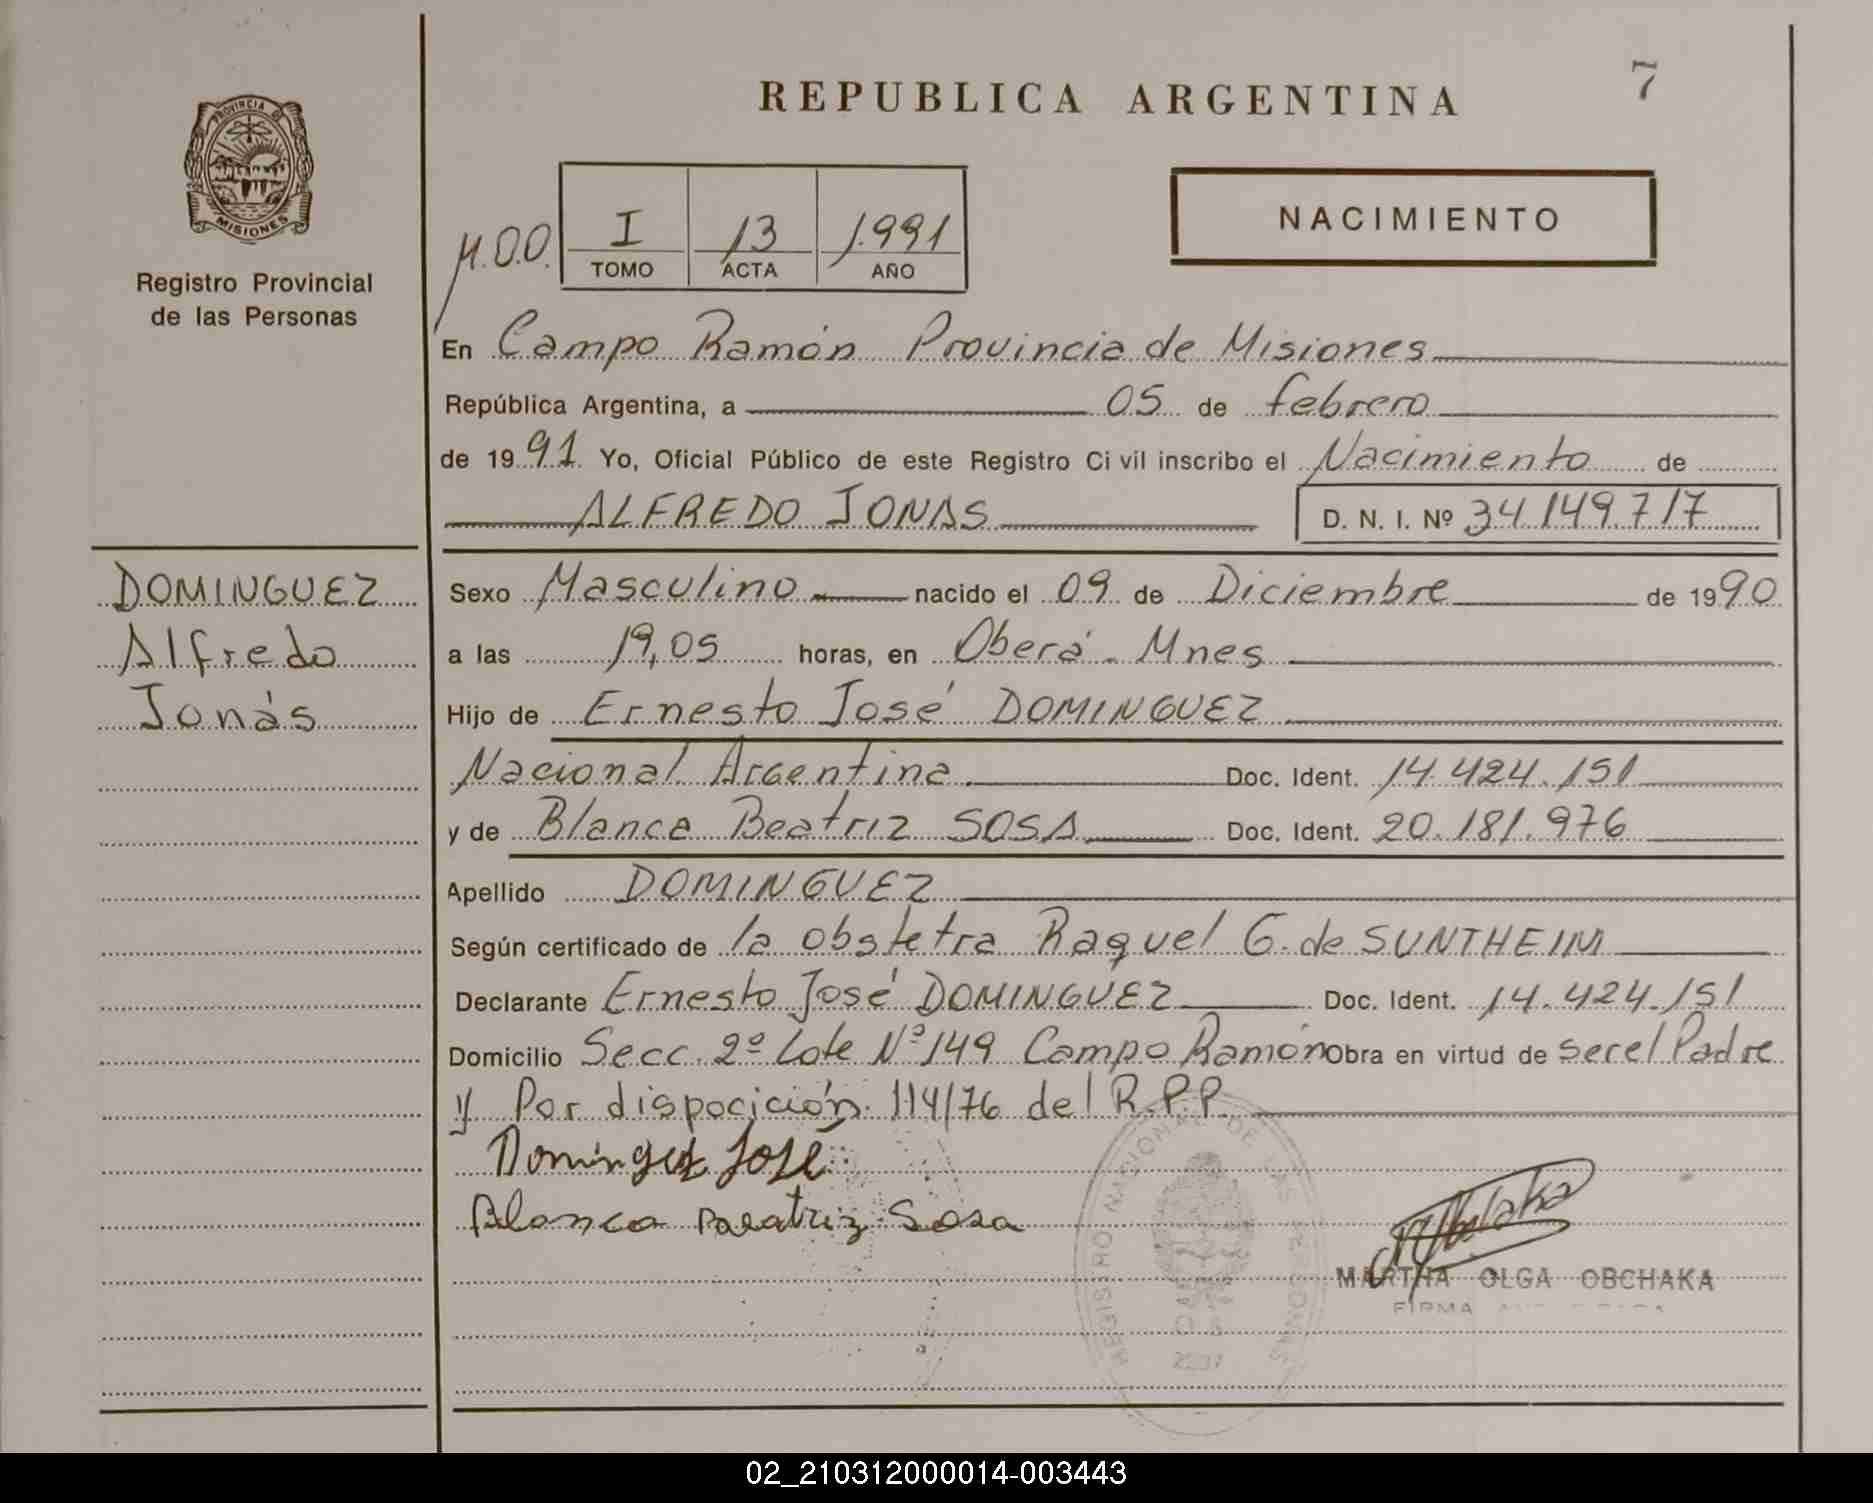 REPUBLICA ARGENTINA
7
PROVINCIA
MISIONES
Registro Provincial
de las Personas
I 13 1.991
TOMO ACTA AÑO
NACIMIENTO
En Campo Ramón Provincia de Misiones
República Argentina, a 05 de febrero
de 1991 Yo, Oficial Público de este Registro Civil inscribo el Nacimiento de
ALFREDO JONAS D. N. I. Nº 34.149.717
DOMINGUEZ
Alfredo
Jonás
Sexo Masculino nacido el 09 de Diciembre de 1990
a las 19,05 horas, en Oberá - Mnes
Hijo de Ernesto José DOMINGUEZ
Nacional Argentina Doc. Ident. 14.424.151
y de Blanca Beatriz SOSA Doc. Ident. 20.181.976
Apellido DOMINGUEZ
Según certificado de la obstetra Raquel G. de SUNTHEIM
Declarante Ernesto José DOMINGUEZ Doc. Ident. 14.424.151
Domicilio Secc. 2º Lote Nº 149 Campo Ramón Obra en virtud de ser el Padre
y Por dispocición 114/76 del R.P.P.
Dominguez José
Blanca Beatriz Sosa
REGISTRO NACIONAL DE LAS PERSONAS
MARTHA OLGA OBCHAKA
FIRMA
02_210312000014-003443